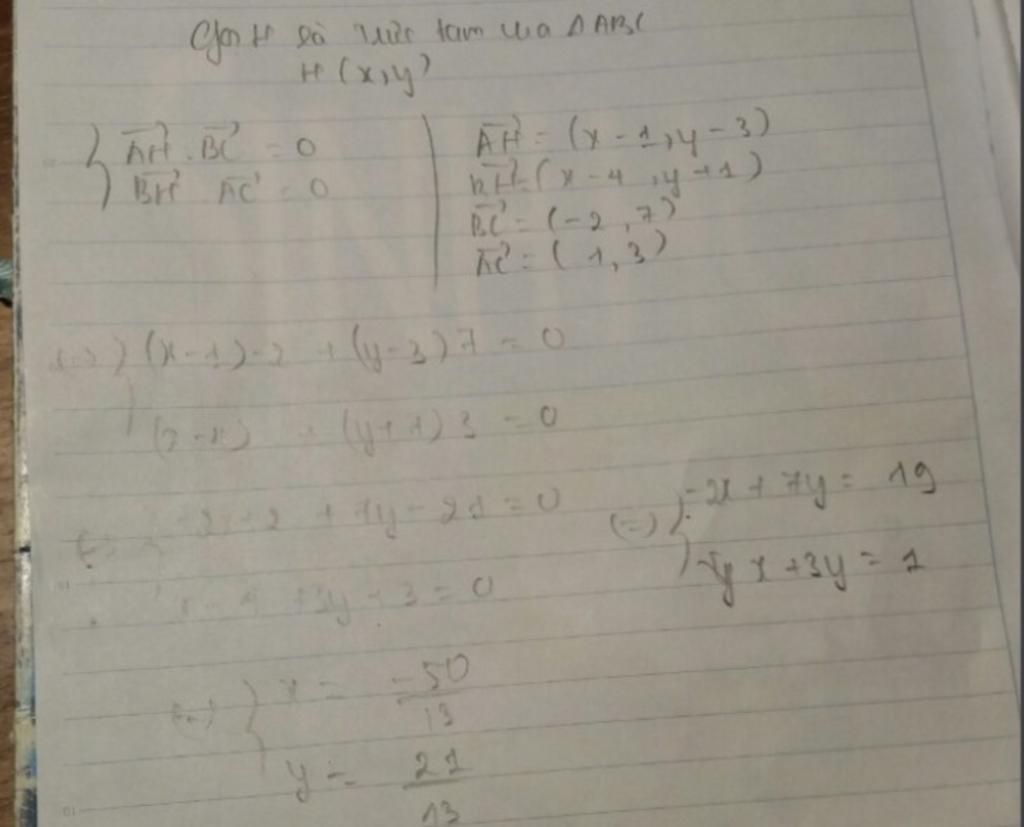 Gọi H là trực tâm của ΔABC
H (x, y)
{ AH⃗ . BC⃗ = 0
BH⃗ AC⃗ = 0
AH⃗ = (x - 1, y - 3)
BH⃗ = (x - 4, y + 1)
BC⃗ = (-2, 7)
AC⃗ = (1, 3)
(x - 1) -2 + (y - 3) 7 = 0
+ (y + 1) 3 = 0
+ 7y - 21 = 0
+ 3y + 3 = 0
(=) { -2x + 7y = 19
x + 3y = 1
(=) { x = -50/13
y = 21/13